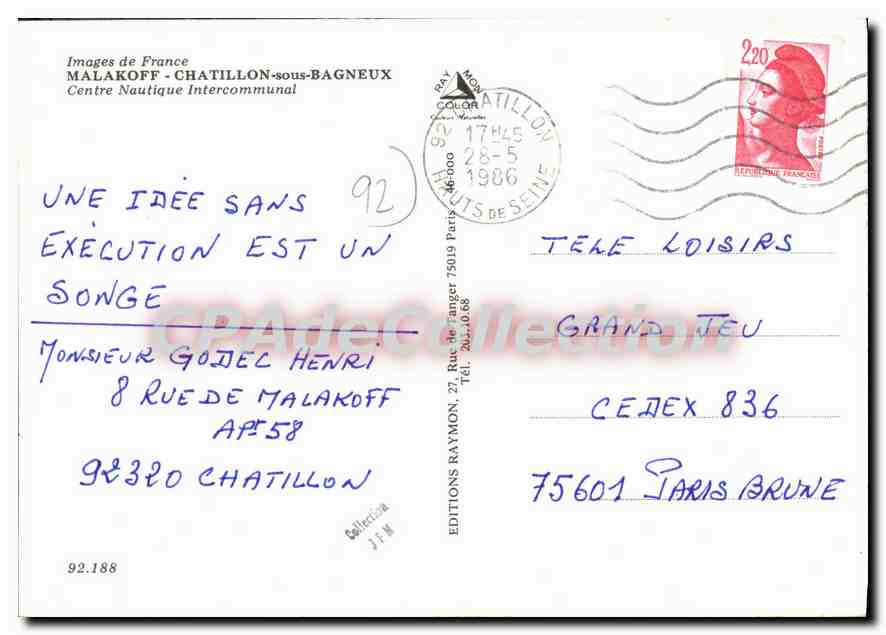 Images de France
MALAKOFF - CHATILLON-sous-BAGNEUX
Centre Nautique Intercommunal
92
UNE IDÉE SANS
EXÉCUTION EST UN
SONGE
MONSIEUR GODEC HENRI
8 RUE DE MALAKOFF
APT 58
92320 CHATILLON
Collection
JFM
92.188
RAYMON
COLOR
EDITIONS RAYMON, 27, Rue de Tanger 75019 Paris 46-000
Tél. 201.10.68
92 CHATILLON
17H45
28-5
1986
HAUTS DE SEINE
2,20
REPUBLIQUE FRANÇAISE
TELE LOISIRS
GRAND JEU
CEDEX 836
75601 PARIS BRUNE
CPAdeCollection